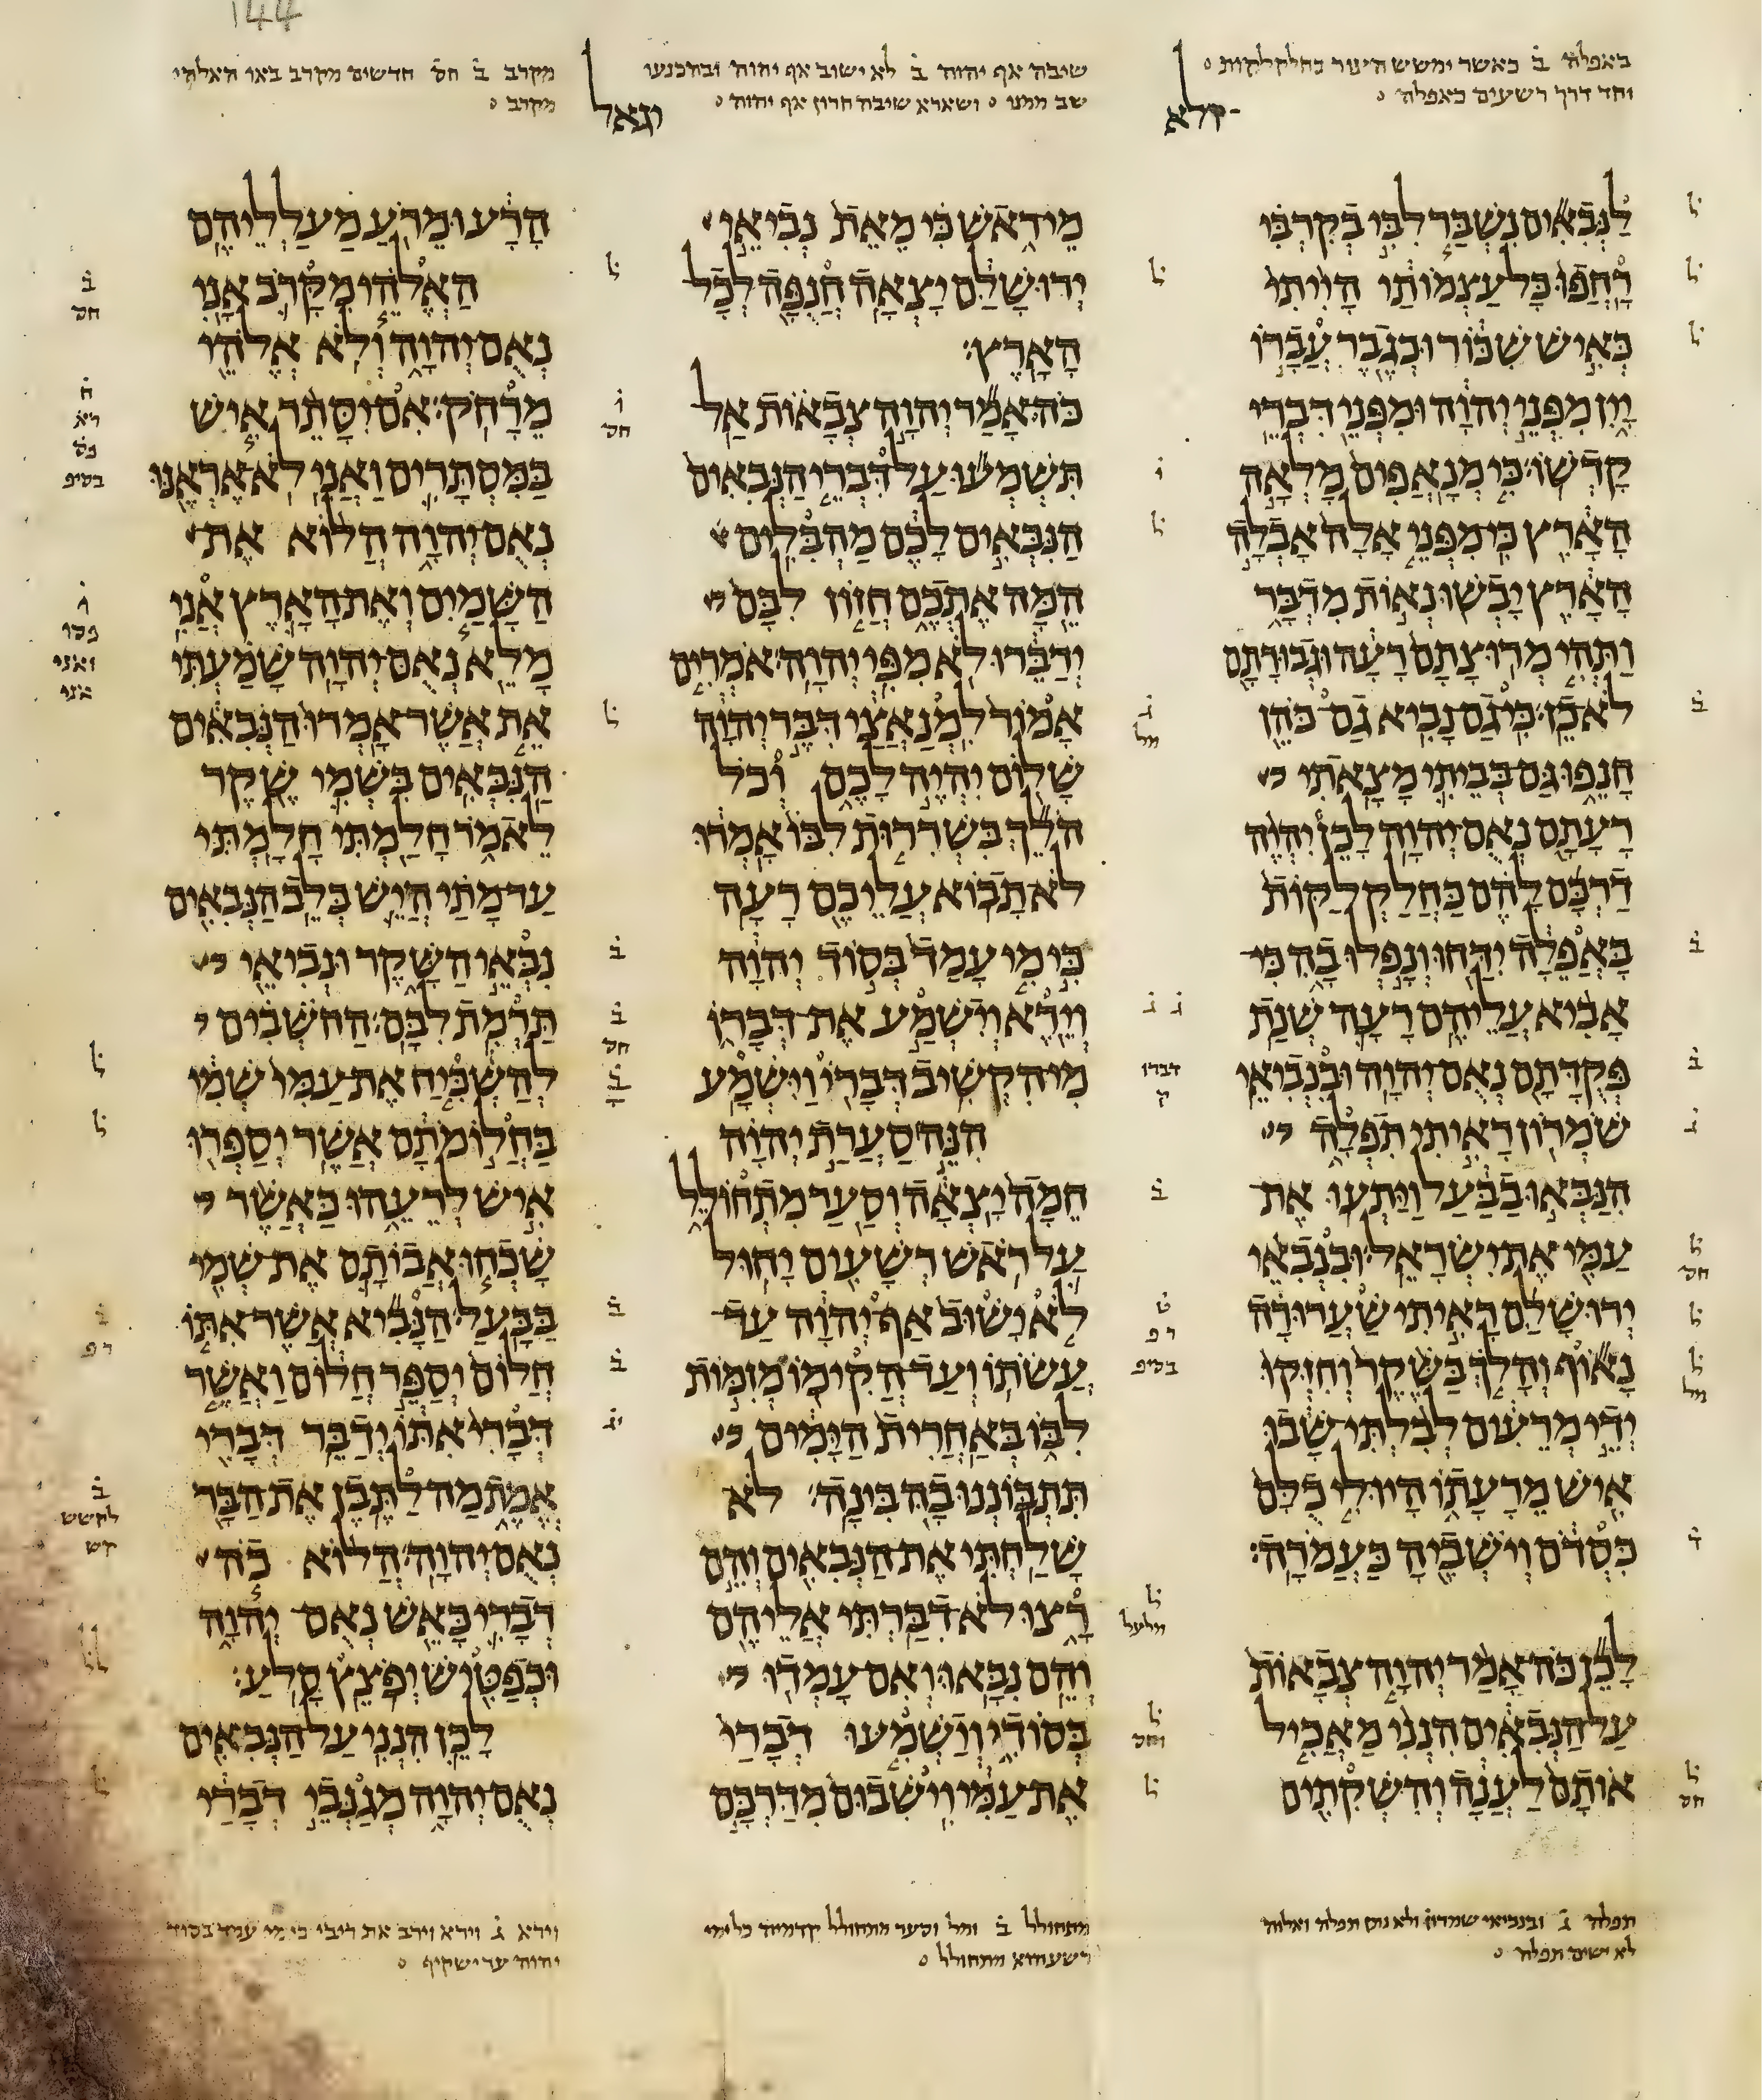 144
באפלה ב כאשר ימשש העור כחלקלקות
וחד דרך רשעים כאפלה
קלא
לנבאים נשבר לבי בקרבי
רחפו כל עצמותי הייתי
כאיש שכור וכגבר עברו
יין מפני יהוה ומפני דברי
קדשו׃ כי מנאפים מלאה
הארץ כי מפני אלה אבלה
הארץ יבשו נאות מדבר
ותהי מרוצתם רעה וגבורתם
לא כן׃ כי גם נביא גם כהן
חנפו גם בביתי מצאתי
רעתם נאם יהוה׃ לכן יהיה
דרכם להם כחלקלקות
באפלה ידחו ונפלו בה כי
אביא עליהם רעה שנת
פקדתם נאם יהוה׃ ובנביאי
שמרון ראיתי תפלה
הנבאו בבעל ויתעו את
עמי את ישראל׃ ובנבאי
ירושלם ראיתי שערורה
נאוף והלך בשקר וחזקו
ידי מרעים לבלתי שבו
איש מרעתו היו לי כלם
כסדם וישביה כעמרה׃
לכן כה אמר יהוה צבאות
על הנבאים הנני מאכיל
אותם לענה והשקתים
תפלה ג ובנביאי שמרון ולא נתן תפלה ואלוה
לא ישים תפלה
שיבה אף יהוה ב לא ישוב אף יהוה ובהכנעו
שב ממנו ושארא שיבה חרון אף יהוה
יגאל
מי ראש כי מאת נביאי
ירושלם יצאה חנפה לכל
הארץ׃
כה אמר יהוה צבאות אל
תשמעו על דברי הנבאים
הנבאים לכם מהבלים
המה אתכם חזון לבם
ידברו לא מפי יהוה׃ אמרים
אמור למנאצי דבר יהוה
שלום יהיה לכם וכל
הלך בשררות לבו אמרו
לא תבוא עליכם רעה
כי מי עמד בסוד יהוה
וירא וישמע את דברו
מי הקשיב דברי וישמע
הנה סערת יהוה
חמה יצאה וסער מתחולל
על ראש רשעים יחול
לא ישוב אף יהוה עד
עשתו ועד הקימו מזמות
לבו באחרית הימים
תתבוננו בה בינה׃ לא
שלחתי את הנבאים והם
רצו לא דברתי אליהם
והם נבאו׃ ואם עמדו
בסודי וישמעו דברי
את עמי וישבום מדרכם
מתחולל ב ומל וסער מתחולל קדמיה כל ימי
רשע הוא מתחולל
מקרב ב חס חדשים מקרב באו האלהי
מקרב
הרע ומרע מעלליהם
האלהי מקרב אני
נאם יהוה ולא אלהי
מרחק׃ אם יסתר איש
במסתרים ואני לא אראנו
נאם יהוה הלוא את
השמים ואת הארץ אני
מלא נאם יהוה׃ שמעתי
את אשר אמרו הנבאים
הנבאים בשמי שקר
לאמר חלמתי חלמתי
עד מתי היש בלב הנבאים
נבאי השקר ונביאי
תרמת לבם׃ החשבים
להשכיח את עמי שמי
בחלומתם אשר יספרו
איש לרעהו כאשר
שכחו אבותם את שמי
בבעל׃ הנביא אשר אתו
חלום יספר חלום ואשר
דברי אתו ידבר דברי
אמת מה לתבן את הבר
נאם יהוה׃ הלוא כה
דברי כאש נאם יהוה
וכפטיש יפצץ סלע׃
לכן הנני על הנבאים
נאם יהוה מגנבי דברי
וירא ג וירא וירב את ריבי כי מי עמד בסוד
יהוה עד ישקיף